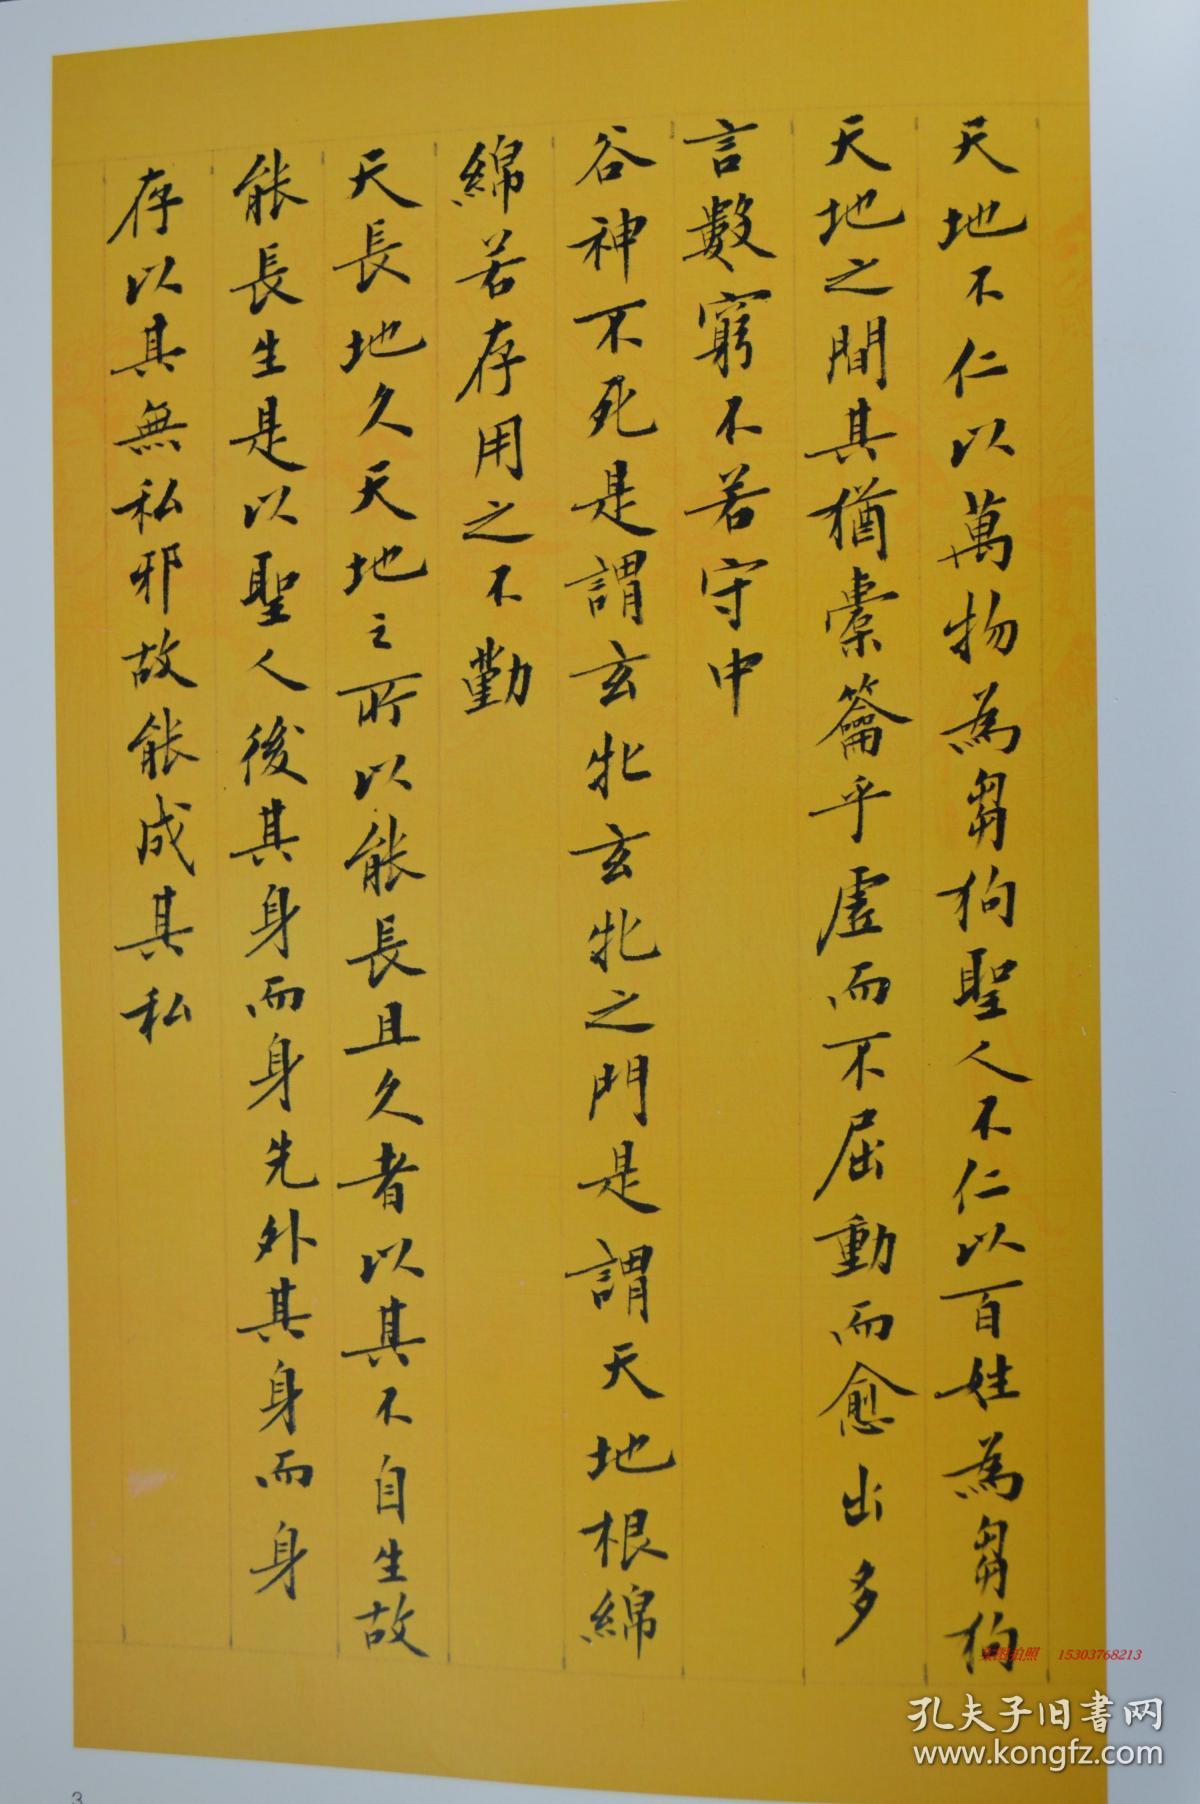 天地不仁以萬物為芻狗聖人不仁以百姓為芻狗
天地之間其猶橐籥乎虛而不屈動而愈出多
言數窮不若守中
谷神不死是謂玄牝玄牝之門是謂天地根綿
綿若存用之不勤
天長地久天地之所以能長且久者以其不自生故
能長生是以聖人後其身而身先外其身而身
存以其無私邪故能成其私
实图拍照 15303768213
孔夫子旧書网
www.kongfz.com
3